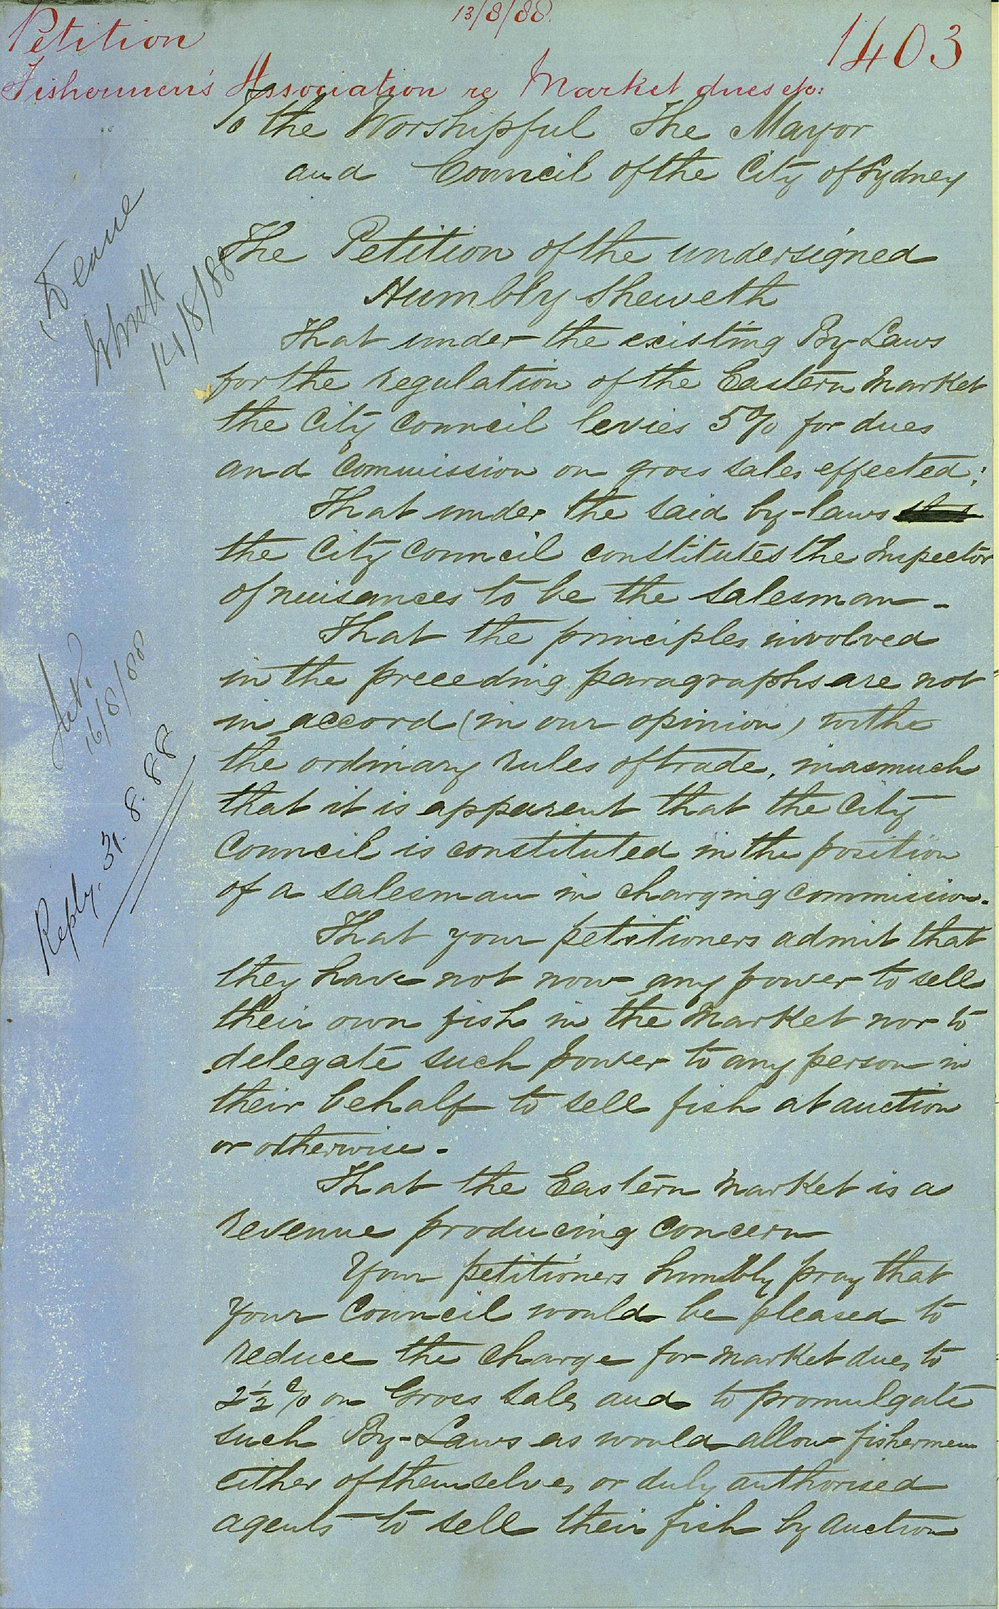 13/8/88.
Petition
1403
Fishermen's Association re Market dues etc:
To the Worshipful The Mayor
and Council of the City of Sydney
The Petition of the undersigned
Humbly Sheweth
That under the existing By-Laws
for the regulation of the Eastern Market
the City Council levies 5% for dues
and Commission on gross sales effected;
That under the said by-laws
the City Council constitutes the Inspector
of nuisances to be the salesman -
That the principles involved
in the preceding paragraphs are not
in accord (in our opinion) with
the ordinary rules of trade, inasmuch
that it is apparent that the City
Council is constituted in the position
of a salesman in charging commission.
That your petitioners admit that
they have not now any power to sell
their own fish in the Market nor to
delegate such power to any person in
their behalf to sell fish at auction
or otherwise -
That the Eastern Market is a
revenue producing concern
Your petitioners humbly pray that
Your Council would be pleased to
reduce the charge for market dues to
2½% on Gross Sales and to promulgate
such By-Laws as would allow fishermen
either of themselves or duly authorised
agents to sell their fish by auction
14/8/88
16/8/88
Reply. 31.8.88